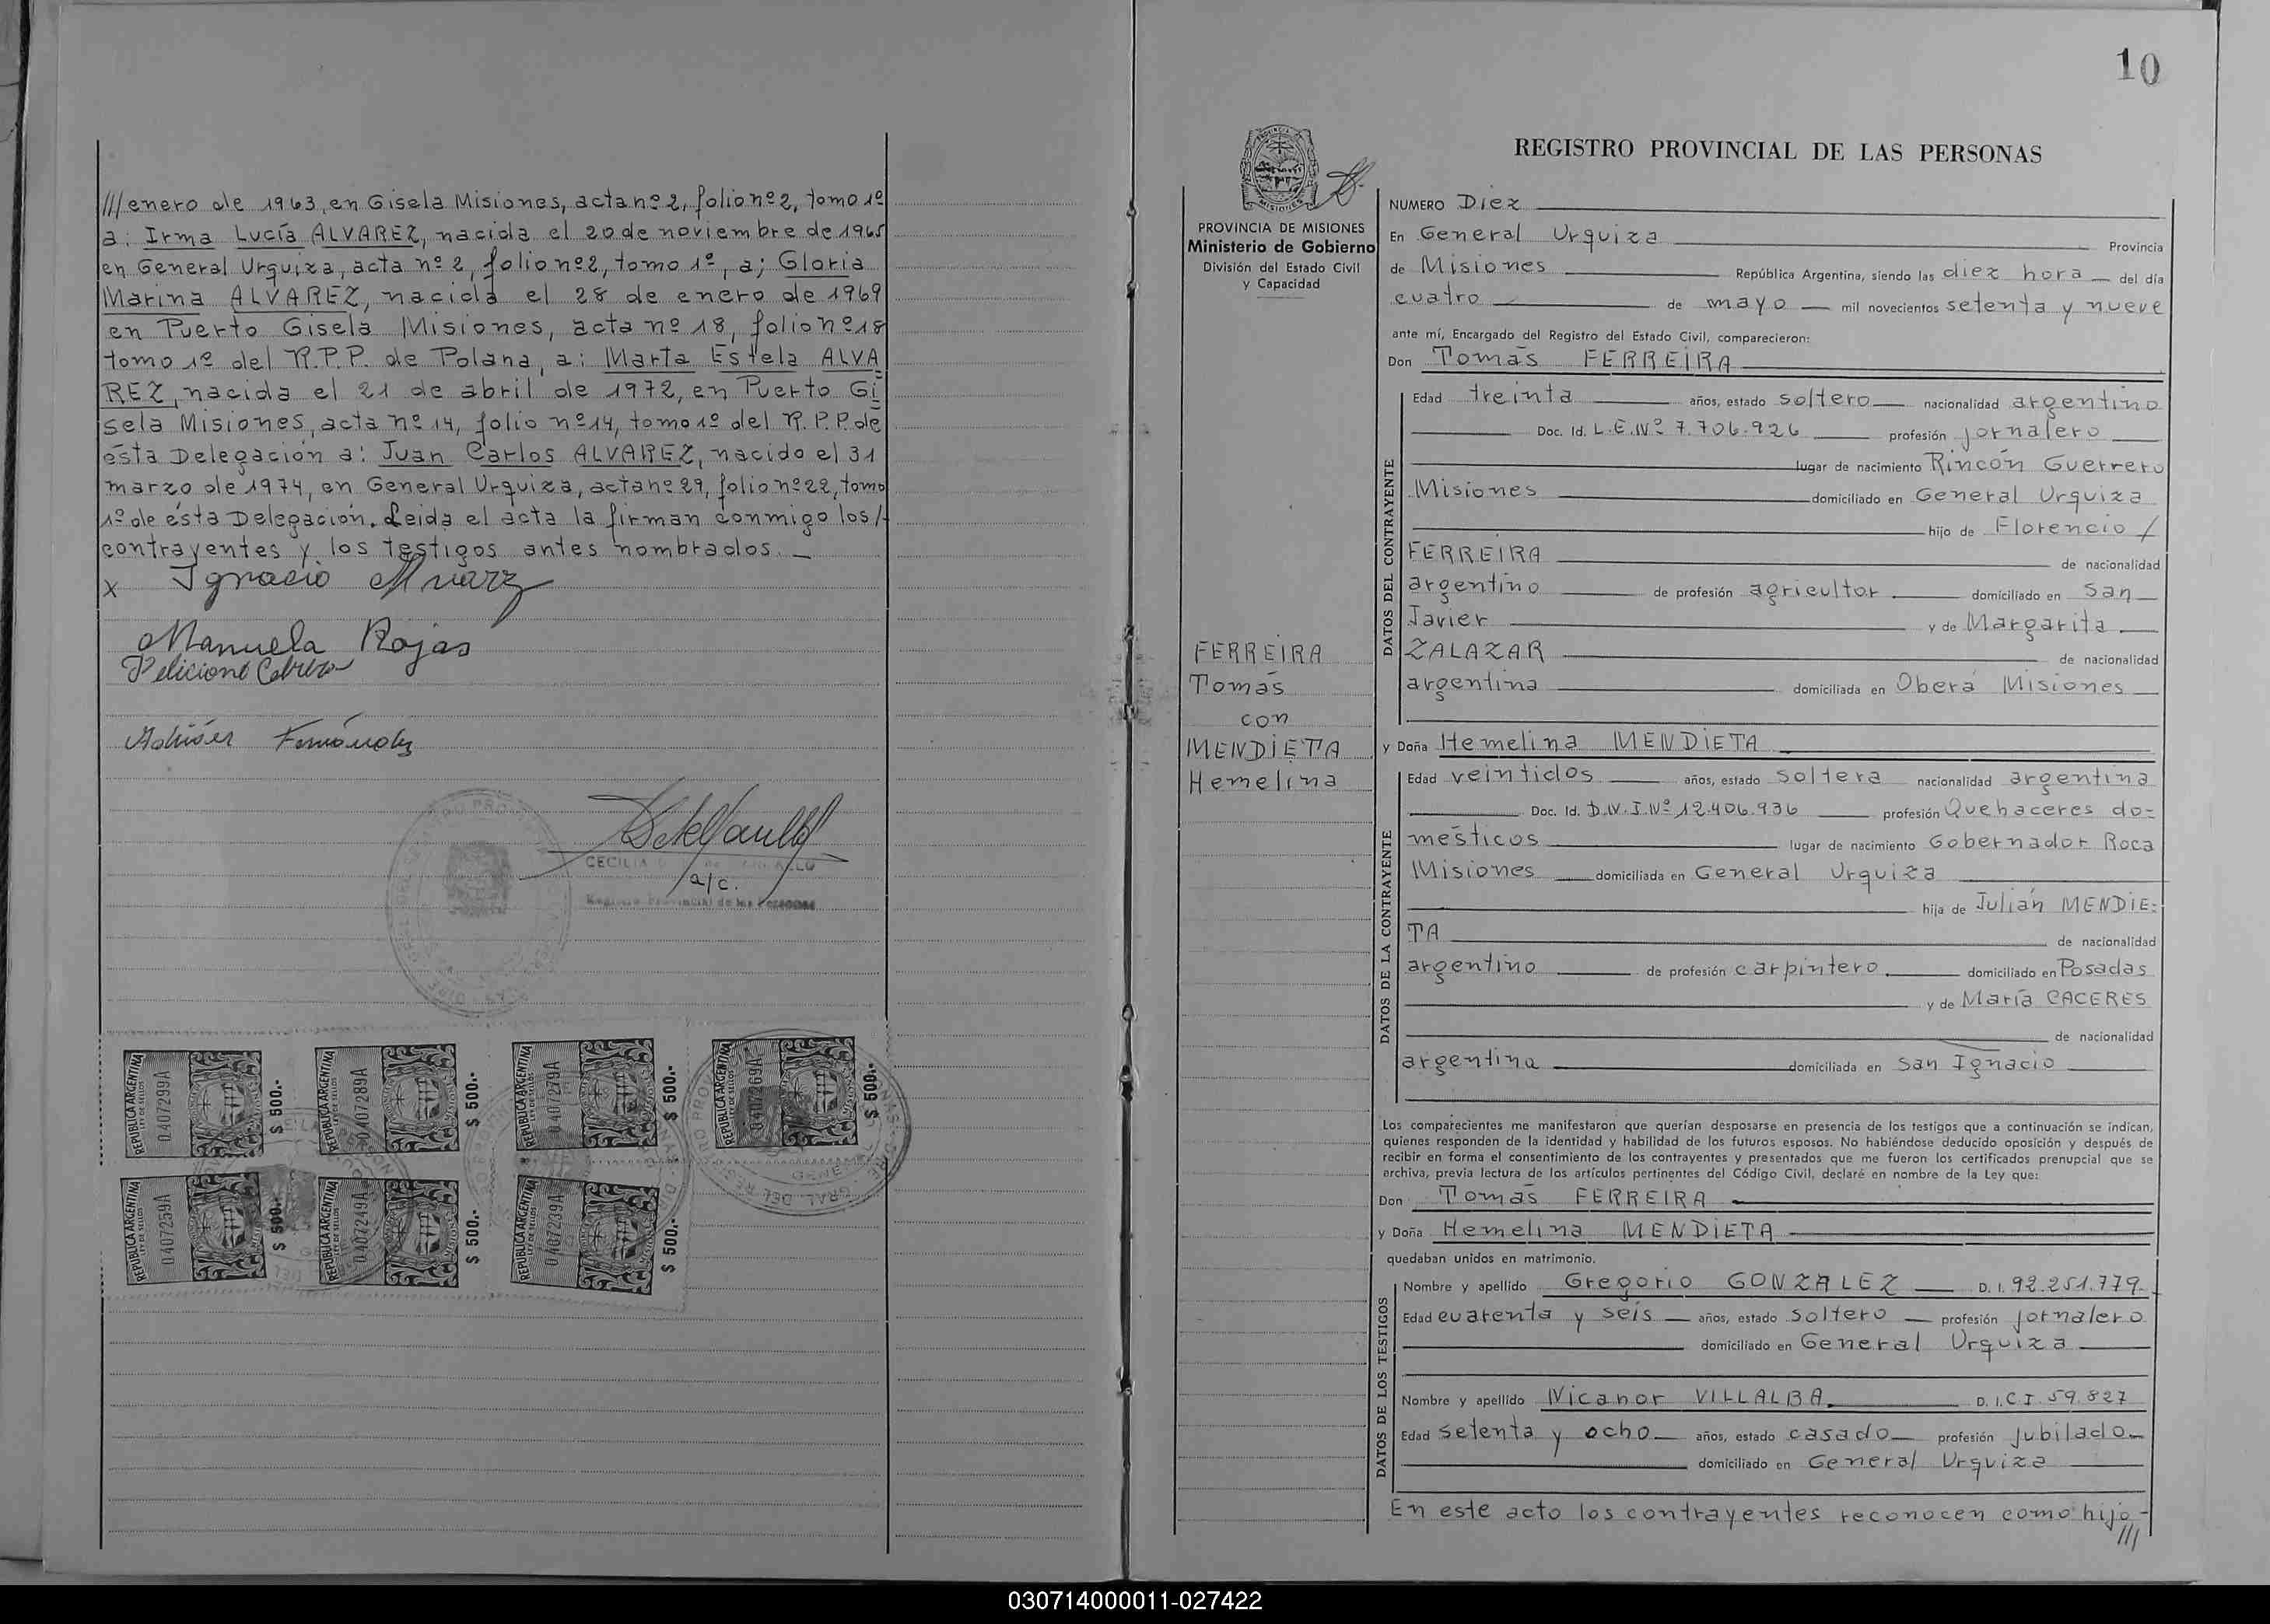 ///enero de 1963, en Gisela Misiones, acta nº 2, folio nº 2, tomo 1º
a: Irma Lucía ALVAREZ, nacida el 20 de noviembre de 1965
en General Urquiza, acta nº 2, folio nº 2, tomo 1º, a; Gloria
Marina ALVAREZ, nacida el 28 de enero de 1969
en Puerto Gisela Misiones, acta nº 18, folio nº 18
tomo 1º del R.P.P. de Polana, a: Marta Estela ALVA
REZ, nacida el 21 de abril de 1972, en Puerto Gi
sela Misiones, acta nº 14, folio nº 14, tomo 1º del R.P.P. de
ésta Delegación a: Juan Carlos ALVAREZ, nacido el 31
marzo de 1974, en General Urquiza, acta nº 29, folio nº 22, tomo
1º de ésta Delegación. Leida el acta la firman conmigo los/
contrayentes y los testigos antes nombrados. —
x Ignacio Alvarez
Manuela Rojas
Feliciano Cabrera
Fernández
CECILIA
a/c.
Registro Provincial de las Personas
REPUBLICA ARGENTINA LEY DE SELLOS 0407299A $ 500.-
REPUBLICA ARGENTINA LEY DE SELLOS 0407289A $ 500.-
REPUBLICA ARGENTINA LEY DE SELLOS 0407279A $ 500.-
REPUBLICA ARGENTINA LEY DE SELLOS 0407269A $ 500.-
REPUBLICA ARGENTINA LEY DE SELLOS 0407259A $ 500.-
REPUBLICA ARGENTINA LEY DE SELLOS 0407249A $ 500.-
REPUBLICA ARGENTINA LEY DE SELLOS 0407239A $ 500.-
10
REGISTRO PROVINCIAL DE LAS PERSONAS
PROVINCIA DE MISIONES
Ministerio de Gobierno
División del Estado Civil
y Capacidad
FERREIRA
Tomás
con
MENDIETA
Hemelina
NUMERO Diez
En General Urquiza Provincia
de Misiones República Argentina, siendo las diez hora del día
cuatro de mayo mil novecientos setenta y nueve
ante mí, Encargado del Registro del Estado Civil, comparecieron:
Don Tomás FERREIRA
DATOS DEL CONTRAYENTE
Edad treinta años, estado soltero nacionalidad argentino
Doc. Id. L.E.Nº 7.706.926 profesión jornalero
lugar de nacimiento Rincón Guerrero
Misiones domiciliado en General Urquiza
hijo de Florencio /
FERREIRA de nacionalidad
argentino de profesión agricultor domiciliado en San
Javier y de Margarita
ZALAZAR de nacionalidad
argentina domiciliada en Oberá Misiones
y Doña Hemelina MENDIETA
DATOS DE LA CONTRAYENTE
Edad veintidos años, estado soltera nacionalidad argentina
Doc. Id. D.N.I.Nº 12.406.936 profesión Quehaceres do=
mésticos lugar de nacimiento Gobernador Roca
Misiones domiciliada en General Urquiza
hija de Julián MENDIE=
TA de nacionalidad
argentino de profesión carpintero domiciliado en Posadas
y de María CACERES
de nacionalidad
argentina domiciliada en San Ignacio
Los comparecientes me manifestaron que querían desposarse en presencia de los testigos que a continuación se indican,
quienes responden de la identidad y habilidad de los futuros esposos. No habiéndose deducido oposición y después de
recibir en forma el consentimiento de los contrayentes y presentados que me fueron los certificados prenupcial que se
archiva, previa lectura de los artículos pertinentes del Código Civil, declaré en nombre de la Ley que:
Don Tomás FERREIRA
y Doña Hemelina MENDIETA
quedaban unidos en matrimonio.
DATOS DE LOS TESTIGOS
Nombre y apellido Gregorio GONZALEZ D. I. 92.251.779
Edad cuarenta y seis años, estado soltero profesión jornalero
domiciliado en General Urquiza
Nombre y apellido Nicanor VILLALBA D. I. C.I. 59.827
Edad setenta y ocho años, estado casado profesión jubilado
domiciliado en General Urquiza
En este acto los contrayentes reconocen como hijo
///
030714000011-027422